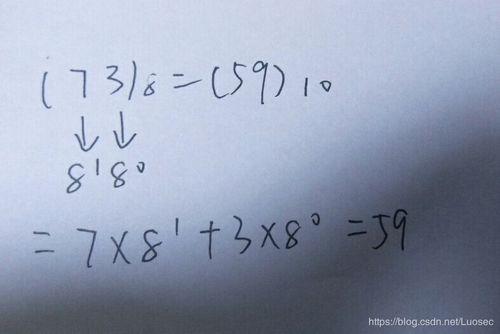 (73)₈=(59)₁₀
↓↓
8¹8⁰
=7×8¹+3×8⁰=59
https://blog.csdn.net/Luosec